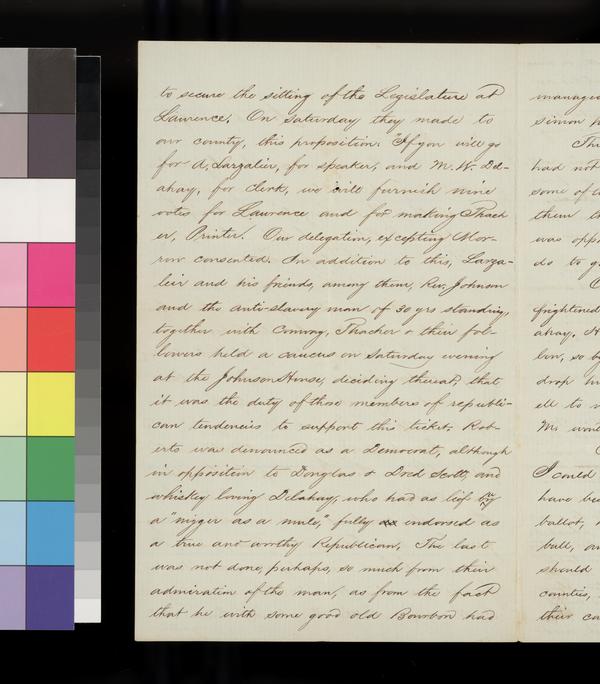 to secure the sitting of the Legislature at
Laurence. On saturday they made to
our county, this proposition. "If you will go
for A. Larzalier, for speaker, and M. W. Del-
ahay, for Clerk, we will furnish nine
votes for Lawrence and for making Thach
er, Printer. Our delegation, excepting Mor-
row consented. In addition to this, Larza-
leir and his friends, among them, Rev. Johnson
and the anti-slavery man of 30 yrs standing,
together with Conway, Thacher & their fol-
lowers held a caucus on Saturday evening
at the Johnson House, deciding thereat, that
it was the duty of those members of republi-
can tendencies to support this ticket. Rob-
erts was denounced as a Democrat, although
in opposition to Douglas & Dred Scott, and
whiskey loving Delahay, who had as lief buy
a "nigger as a mule," fully endorsed as
a true and worthy Republican. The last
was not done, perhaps, so much from their
admiration of the man, as from the fact
that he with some good old Bourbon had
managed
simon
had not
some of
them
was opp
do to g
frightened
ahay. H
low, so by
drop
ell to
Mr. wont
I could
have been
ballot,
ball, an
should
counties,
their ca